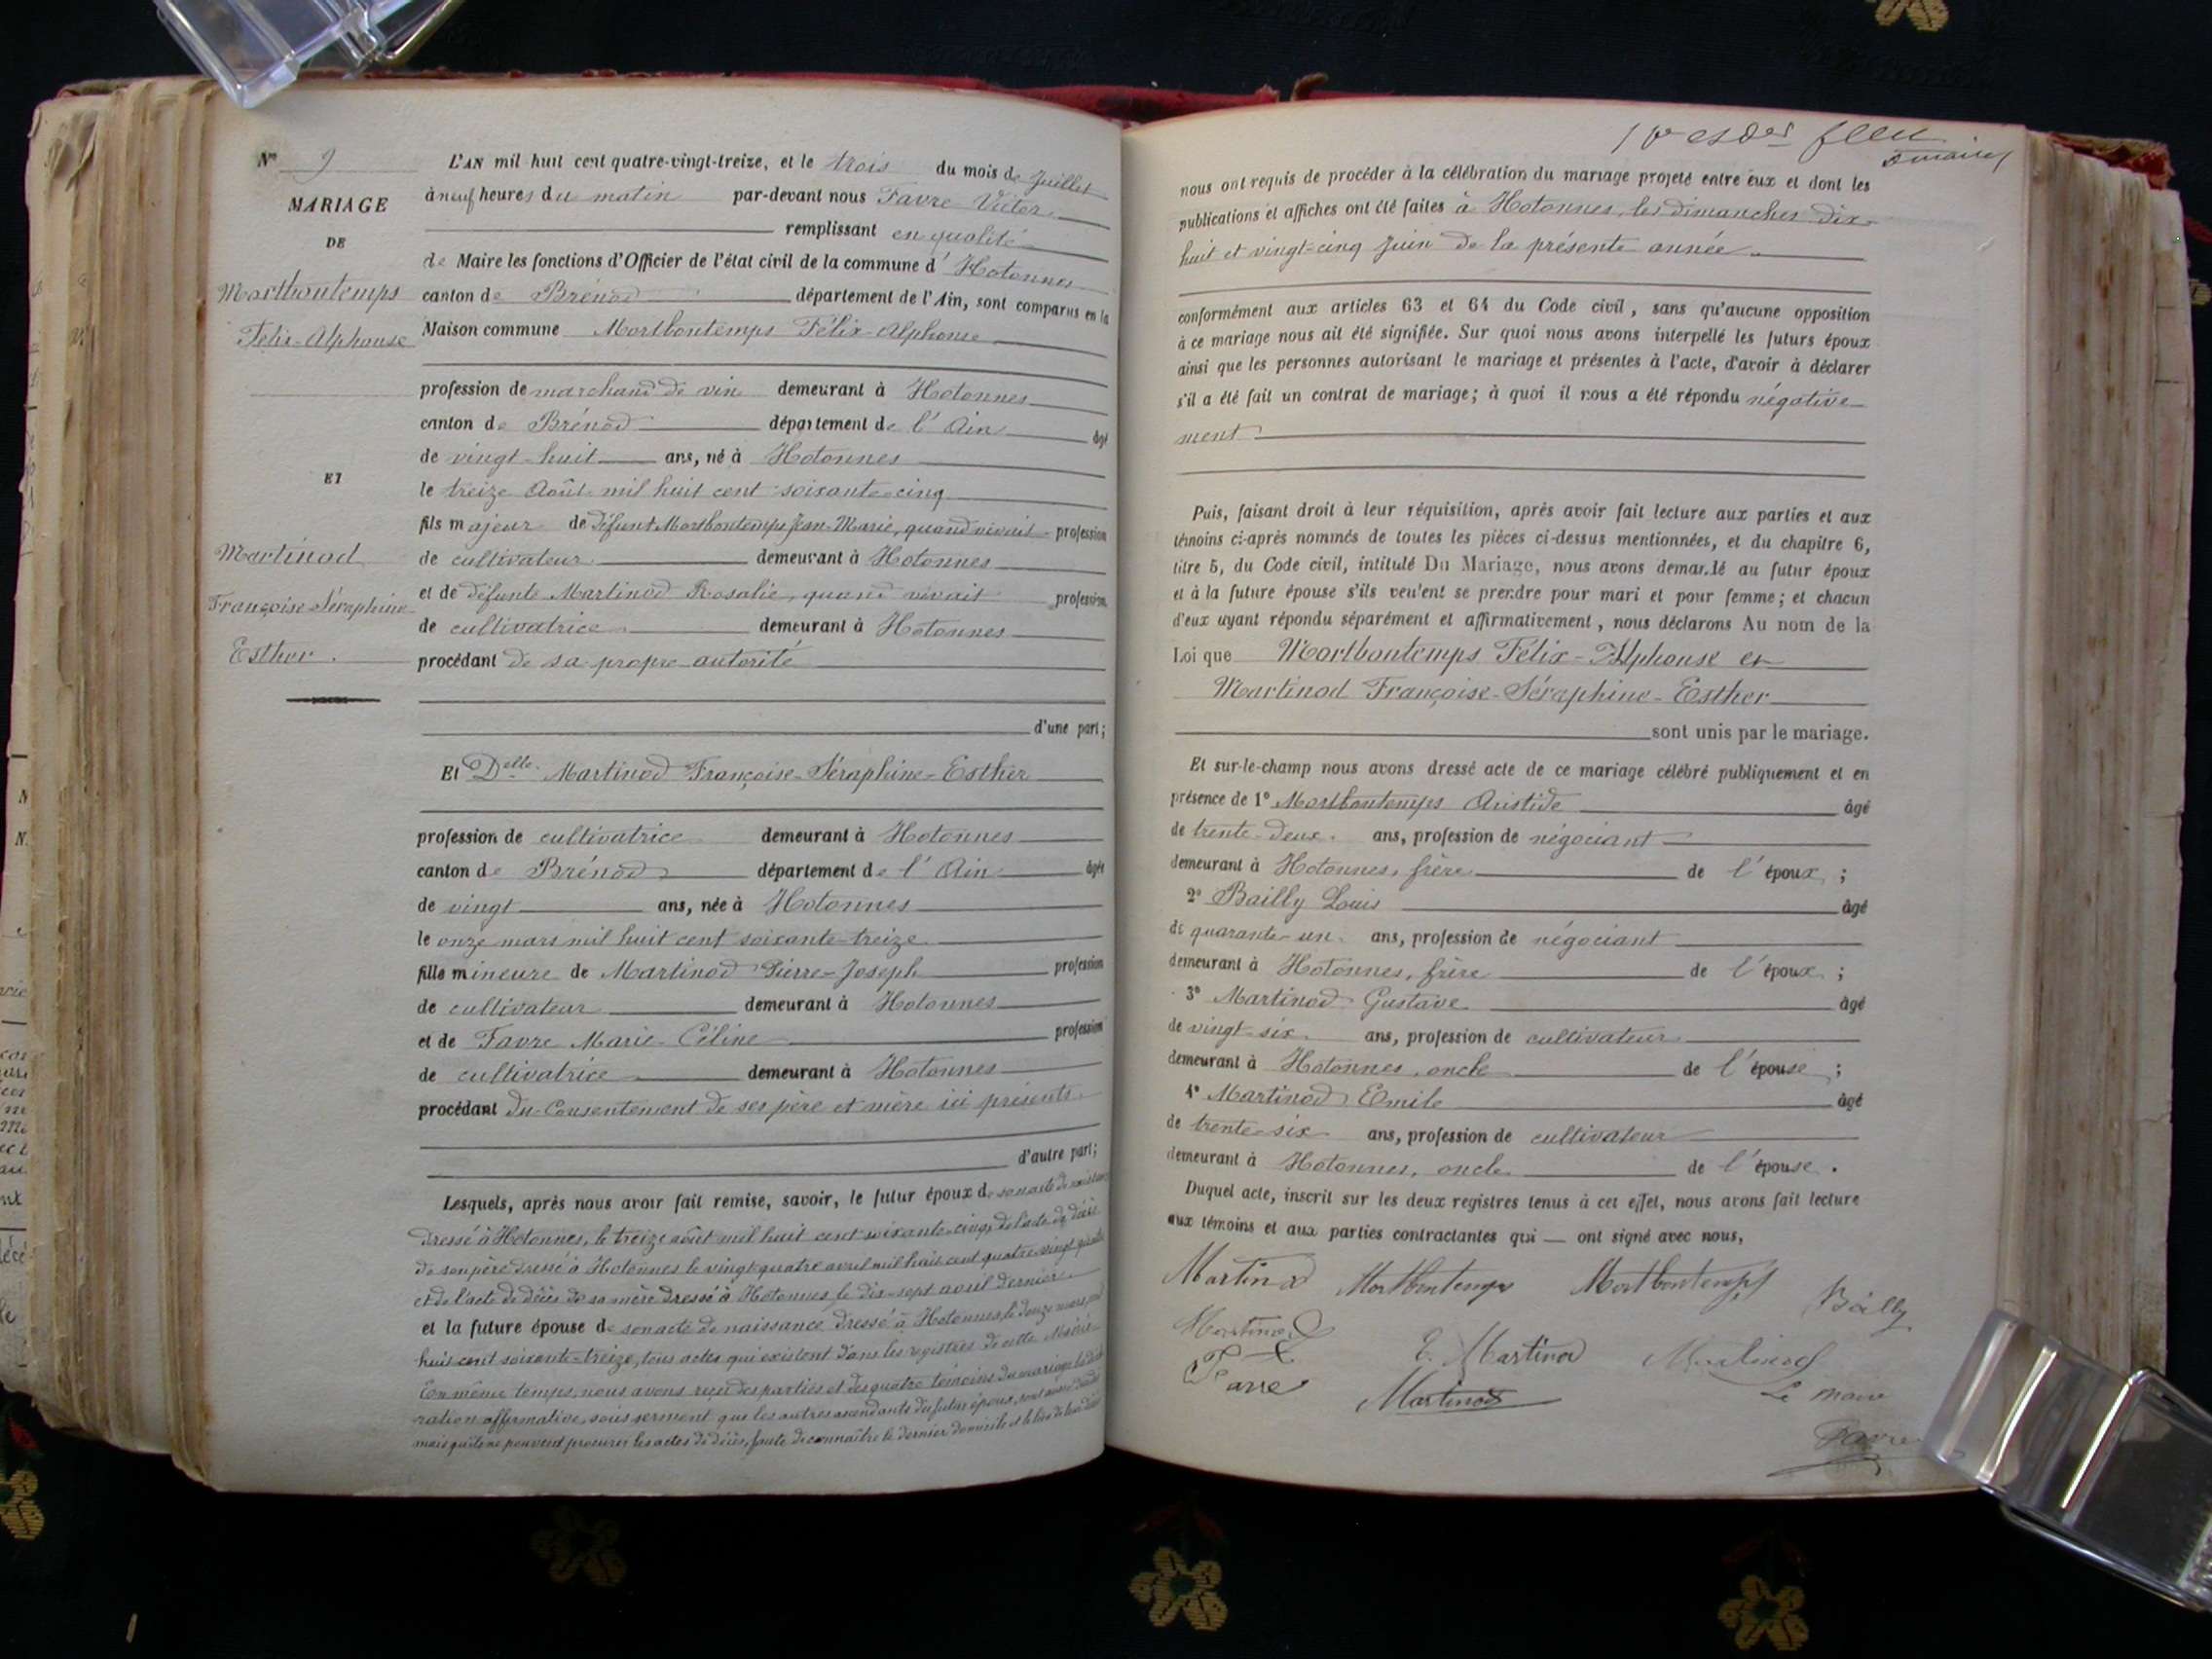 Nº 9
MARIAGE
DE
Mortbontemps
Félix-Alphonse
ET
Martinod
Françoise-Séraphine
Esther.
L'AN mil huit cent quatre-vingt-treize, et le trois du mois de Juillet
à neuf heures du matin par-devant nous Favre Victor
remplissant en qualité
de Maire les fonctions d'Officier de l'état civil de la commune d'Hotonnes
canton de Brénod département de l'Ain, sont comparus en la
Maison commune Mortbontemps Félix-Alphonse
profession de marchand de vin demeurant à Hotonnes
canton de Brénod département de l'Ain âgé
de vingt-huit ans, né à Hotonnes
le treize Août mil huit cent soixante-cinq
fils majeur de défunt Mortbontemps Jean-Marie, quand vivait profession
de cultivateur demeurant à Hotonnes
et de défunte Martinod Rosalie, quand vivait profession
de cultivatrice demeurant à Hotonnes
procédant de sa propre autorité
d'une part;
Et Delle Martinod Françoise-Séraphine-Esther
profession de cultivatrice demeurant à Hotonnes
canton de Brénod département de l'Ain âgée
de vingt ans, née à Hotonnes
le onze mars mil huit cent soixante-treize
fille mineure de Martinod Pierre-Joseph profession
de cultivateur demeurant à Hotonnes
et de Favre Marie-Céline profession
de cultivatrice demeurant à Hotonnes
procédant du consentement de ses père et mère ici présents.
d'autre part;
Lesquels, après nous avoir fait remise, savoir, le futur époux de son acte de naissance
dressé à Hotonnes, le treize août mil huit cent soixante-cinq, de l'acte de décès
de son père dressé à Hotonnes le vingt-quatre avril mil huit cent quatre-vingt-quatre
et de l'acte de décès de sa mère dressé à Hotonnes le dix-sept avril dernier.
et la future épouse de son acte de naissance dressé à Hotonnes, le douze mars, mil
huit cent soixante-treize, tous actes qui existent dans les registres de cette Mairie.
En même temps, nous avons reçu des parties et des quatre témoins du mariage la décla
ration affirmative, sous serment que les autres ascendants du futur époux, sont aussi décédés
mais qu'ils ne peuvent procurer les actes de décès, faute de connaître le dernier domicile et le lieu de leur décès
nous ont requis de procéder à la célébration du mariage projeté entre eux et dont les
publications et affiches ont été faites à Hotonnes, les dimanches dix-
huit et vingt-cinq Juin de la présente année.
conformément aux articles 63 et 64 du Code civil, sans qu'aucune opposition
à ce mariage nous ait été signifiée. Sur quoi nous avons interpellé les futurs époux
ainsi que les personnes autorisant le mariage et présentes à l'acte, d'avoir à déclarer
s'il a été fait un contrat de mariage; à quoi il nous a été répondu négative
ment
Puis, faisant droit à leur réquisition, après avoir fait lecture aux parties et aux
témoins ci-après nommés de toutes les pièces ci-dessus mentionnées, et du chapitre 6,
titre 5, du Code civil, intitulé Du Mariage, nous avons demandé au futur époux
et à la future épouse s'ils veulent se prendre pour mari et pour femme; et chacun
d'eux ayant répondu séparément et affirmativement, nous déclarons Au nom de la
Loi que Mortbontemps Félix-Alphonse et
Martinod Françoise-Séraphine-Esther
sont unis par le mariage.
Et sur-le-champ nous avons dressé acte de ce mariage célébré publiquement et en
présence de 1º Mortbontemps Aristide âgé
de trente-deux ans, profession de négociant
demeurant à Hotonnes, frère de l'époux;
2º Bailly Louis âgé
de quarante-un ans, profession de négociant
demeurant à Hotonnes, frère de l'époux;
3º Martinod Gustave âgé
de vingt-six ans, profession de cultivateur
demeurant à Hotonnes, oncle de l'épouse;
4º Martinod Emile âgé
de trente-six ans, profession de cultivateur
demeurant à Hotonnes, oncle de l'épouse.
Duquel acte, inscrit sur les deux registres tenus à cet effet, nous avons fait lecture
aux témoins et aux parties contractantes qui — ont signé avec nous,
Martinod Mortbontemps Mortbontemps Bailly
Martinod E. Martinod Martinod
Favre Martinod Le maire
Favre